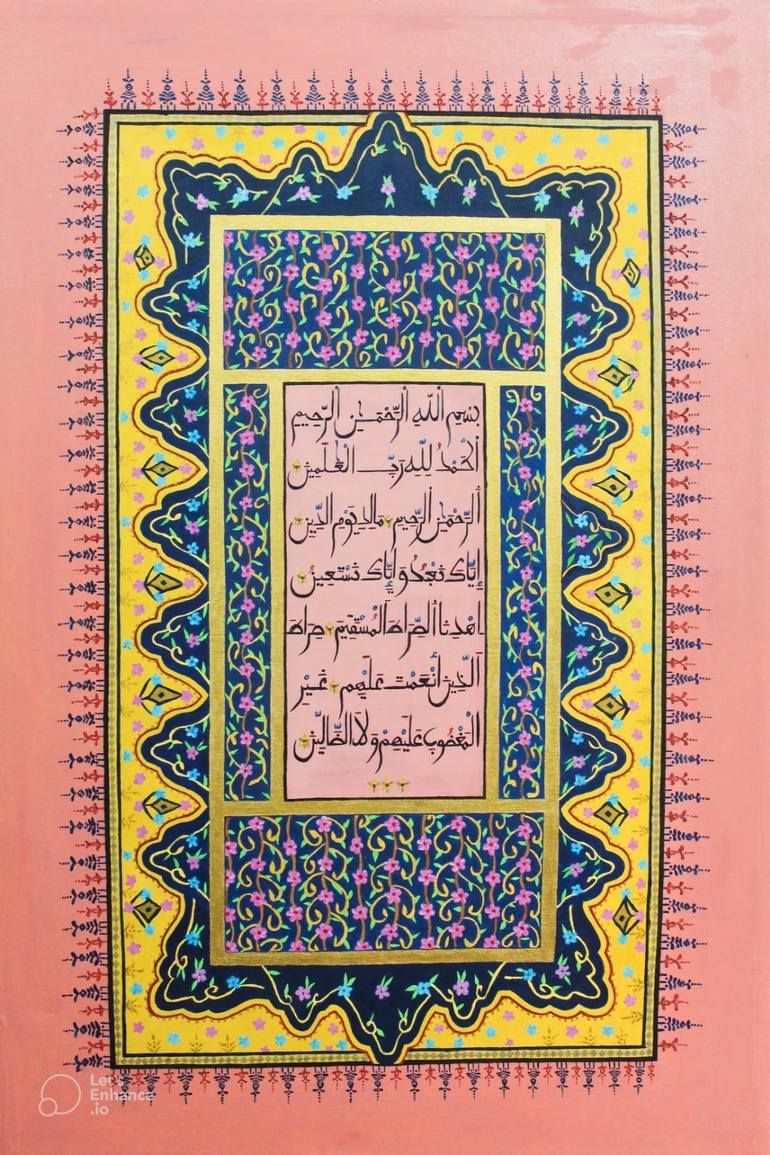 بِسْمِ ٱللَّهِ ٱلرَّحْمَٰنِ ٱلرَّحِيمِ
ٱلْحَمْدُ لِلَّهِ رَبِّ ٱلْعَٰلَمِينَ
ٱلرَّحْمَٰنِ ٱلرَّحِيمِ مَٰلِكِ يَوْمِ ٱلدِّينِ
إِيَّاكَ نَعْبُدُ وَإِيَّاكَ نَسْتَعِينُ
ٱهْدِنَا ٱلصِّرَٰطَ ٱلْمُسْتَقِيمَ صِرَٰطَ
ٱلَّذِينَ أَنْعَمْتَ عَلَيْهِمْ غَيْرِ
ٱلْمَغْضُوبِ عَلَيْهِمْ وَلَا ٱلضَّآلِّينَ
Let's
Enhance
.io